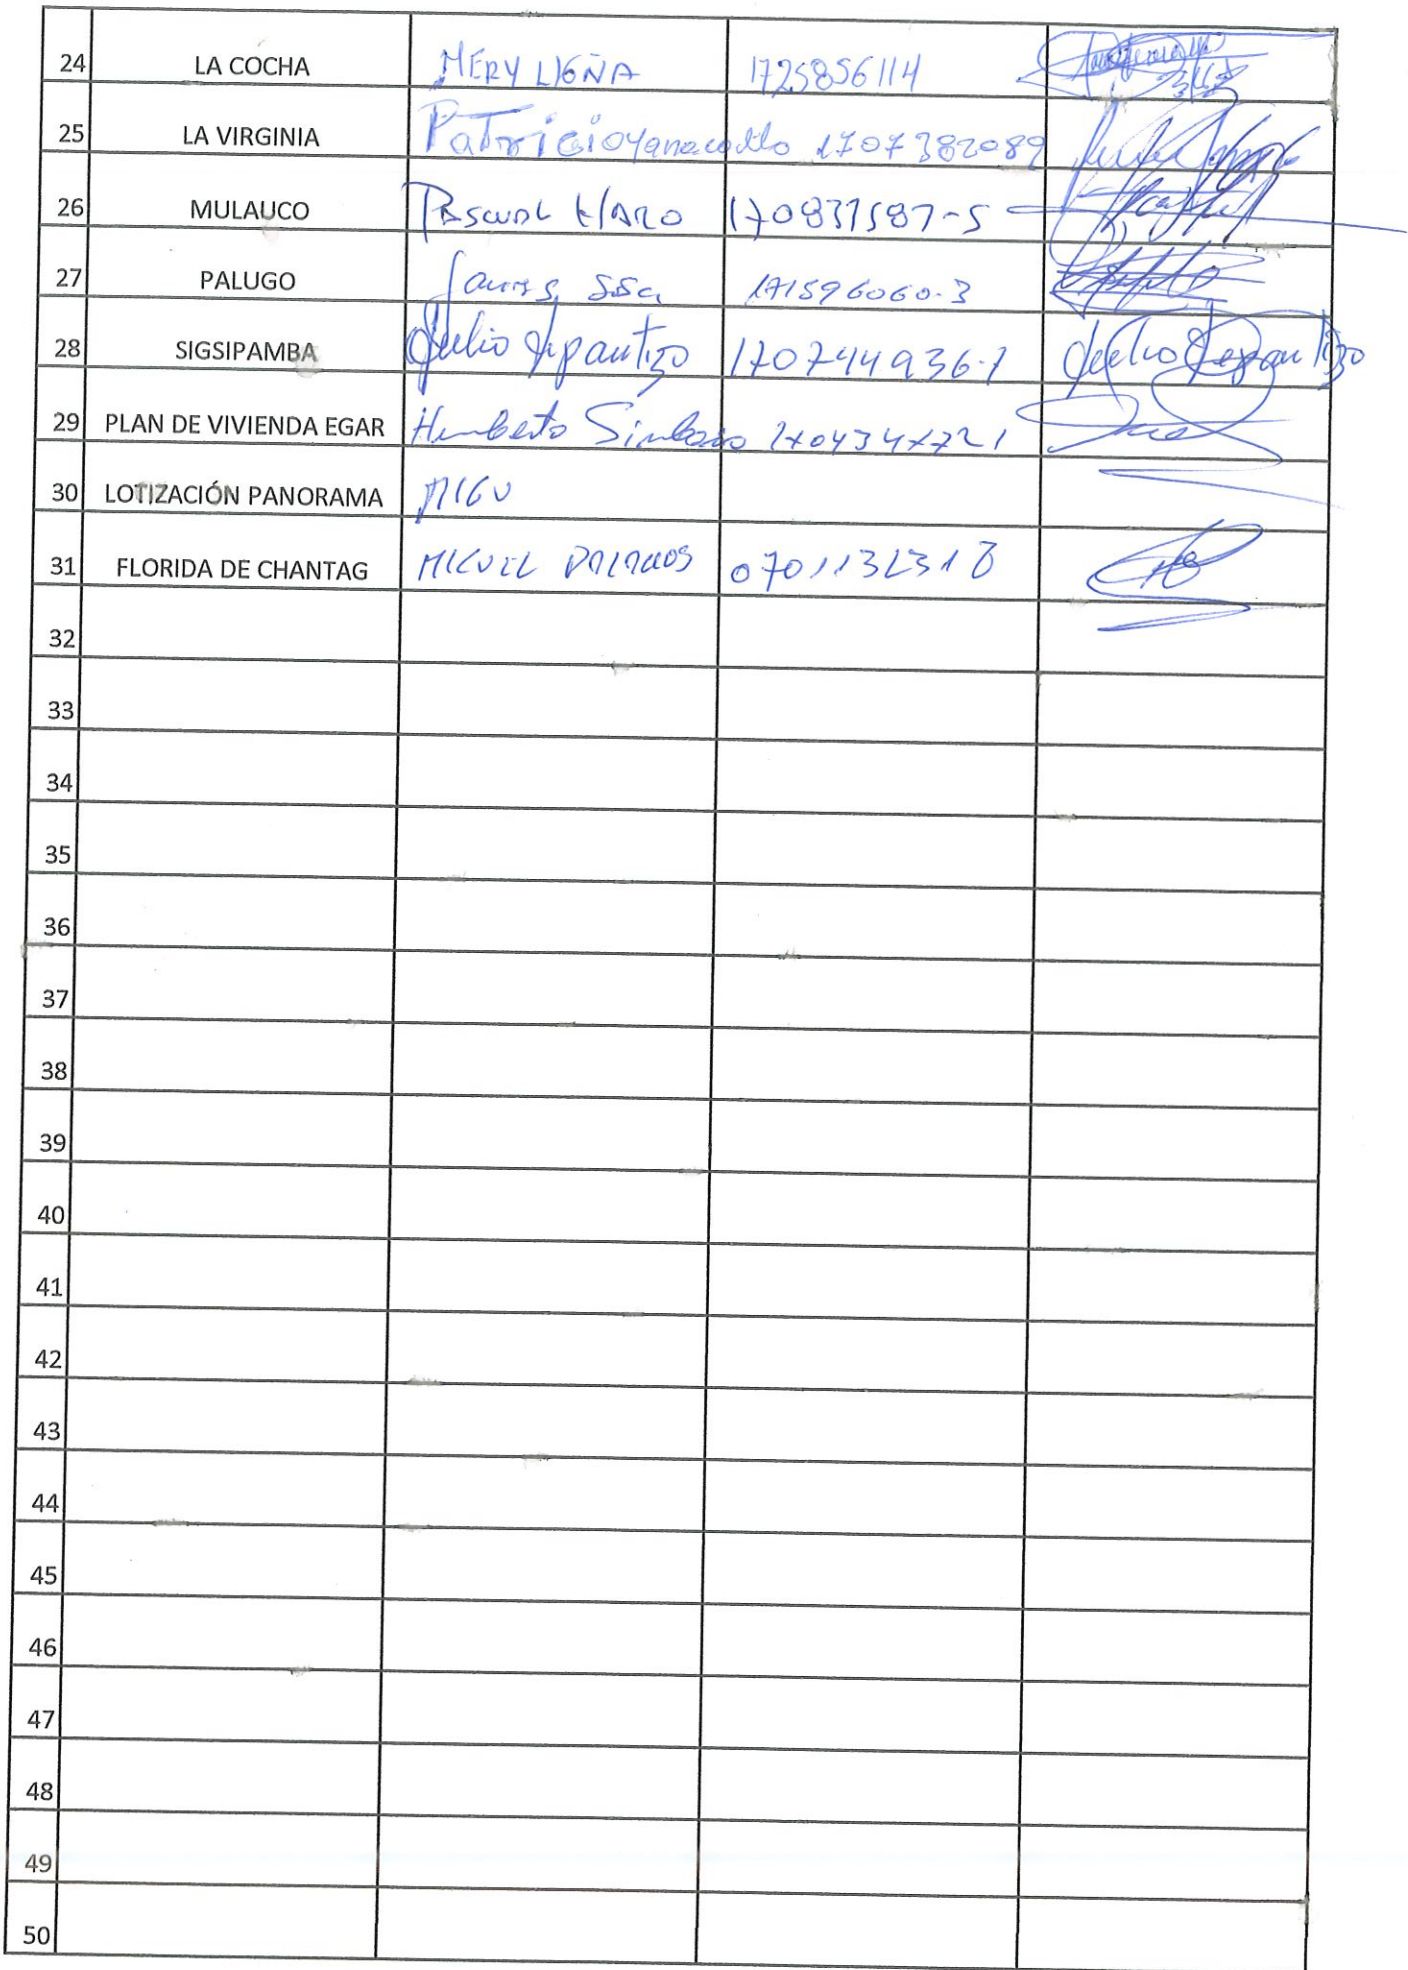 24 LA COCHA MERY LIGÑA 1725856114
25 LA VIRGINIA Patricio Yanacallo 1707382089
26 MULAUCO PASCUAL HARO 170831587-5
27 PALUGO 171596060-3
28 SIGSIPAMBA Julio 170744936-1 Julio
29 PLAN DE VIVIENDA EGAR Humberto 1704347721
30 LOTIZACIÓN PANORAMA MIGU
31 FLORIDA DE CHANTAG MIGUEL 0701132318
32
33
34
35
36
37
38
39
40
41
42
43
44
45
46
47
48
49
50